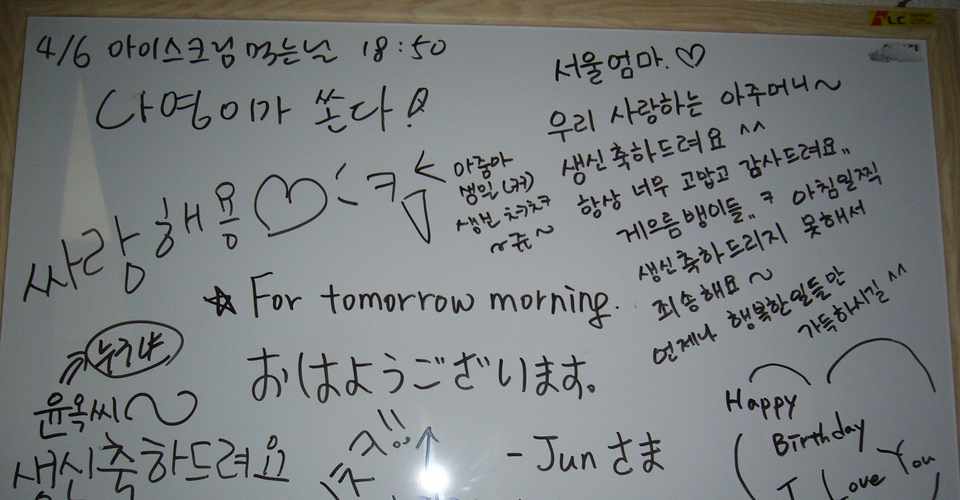 4/6 아이스크림 먹는날 18:50
다영이가 쏜다!
싸랑해용♡
ㅋ
아줌마
생일 (ㅋㅋ)
서울엄마.♡
우리 사랑하는 아주머니~
생신축하드려요^^
항상 너무 고맙고 감사드려요..
게으름뱅이들.. ㅋ 아침일찍
생신축하드리지 못해서
죄송해요~
언제나 행복한일들만
가득하시길^^
☆ For tomorrow morning.
おはようございます。
- Jun さま
누구냐
윤옥씨~
생신축하드려요
Happy
Birthday
I Love You
LC